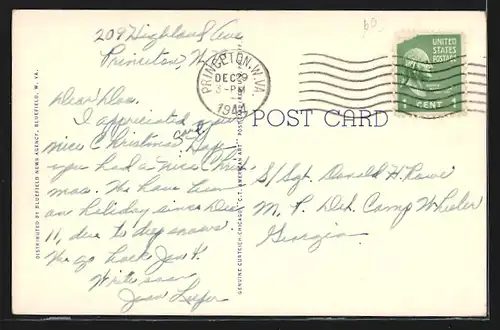 209 Highland Ave
Princeton, W. Va
Dear Don,
I appreciated your
nice Christmas card. Hope
you had a nice Christ-
mas. We have been
on holiday since Dec
11, due to deep snows.
We go back Jan 4.
Write soon
Jean
PRINCETON, W. VA.
DEC 29
3-PM
UNITED
STATES
POSTAGE
1 CENT 1
POST CARD
S/Sgt. Donald H. Rowe
M. P. Det. Camp Wheeler
Georgia
DISTRIBUTED BY BLUEFIELD NEWS AGENCY, BLUEFIELD, W. VA.
GENUINE CURTEICH-CHICAGO "C.T. AMERICAN ART" POST CARD